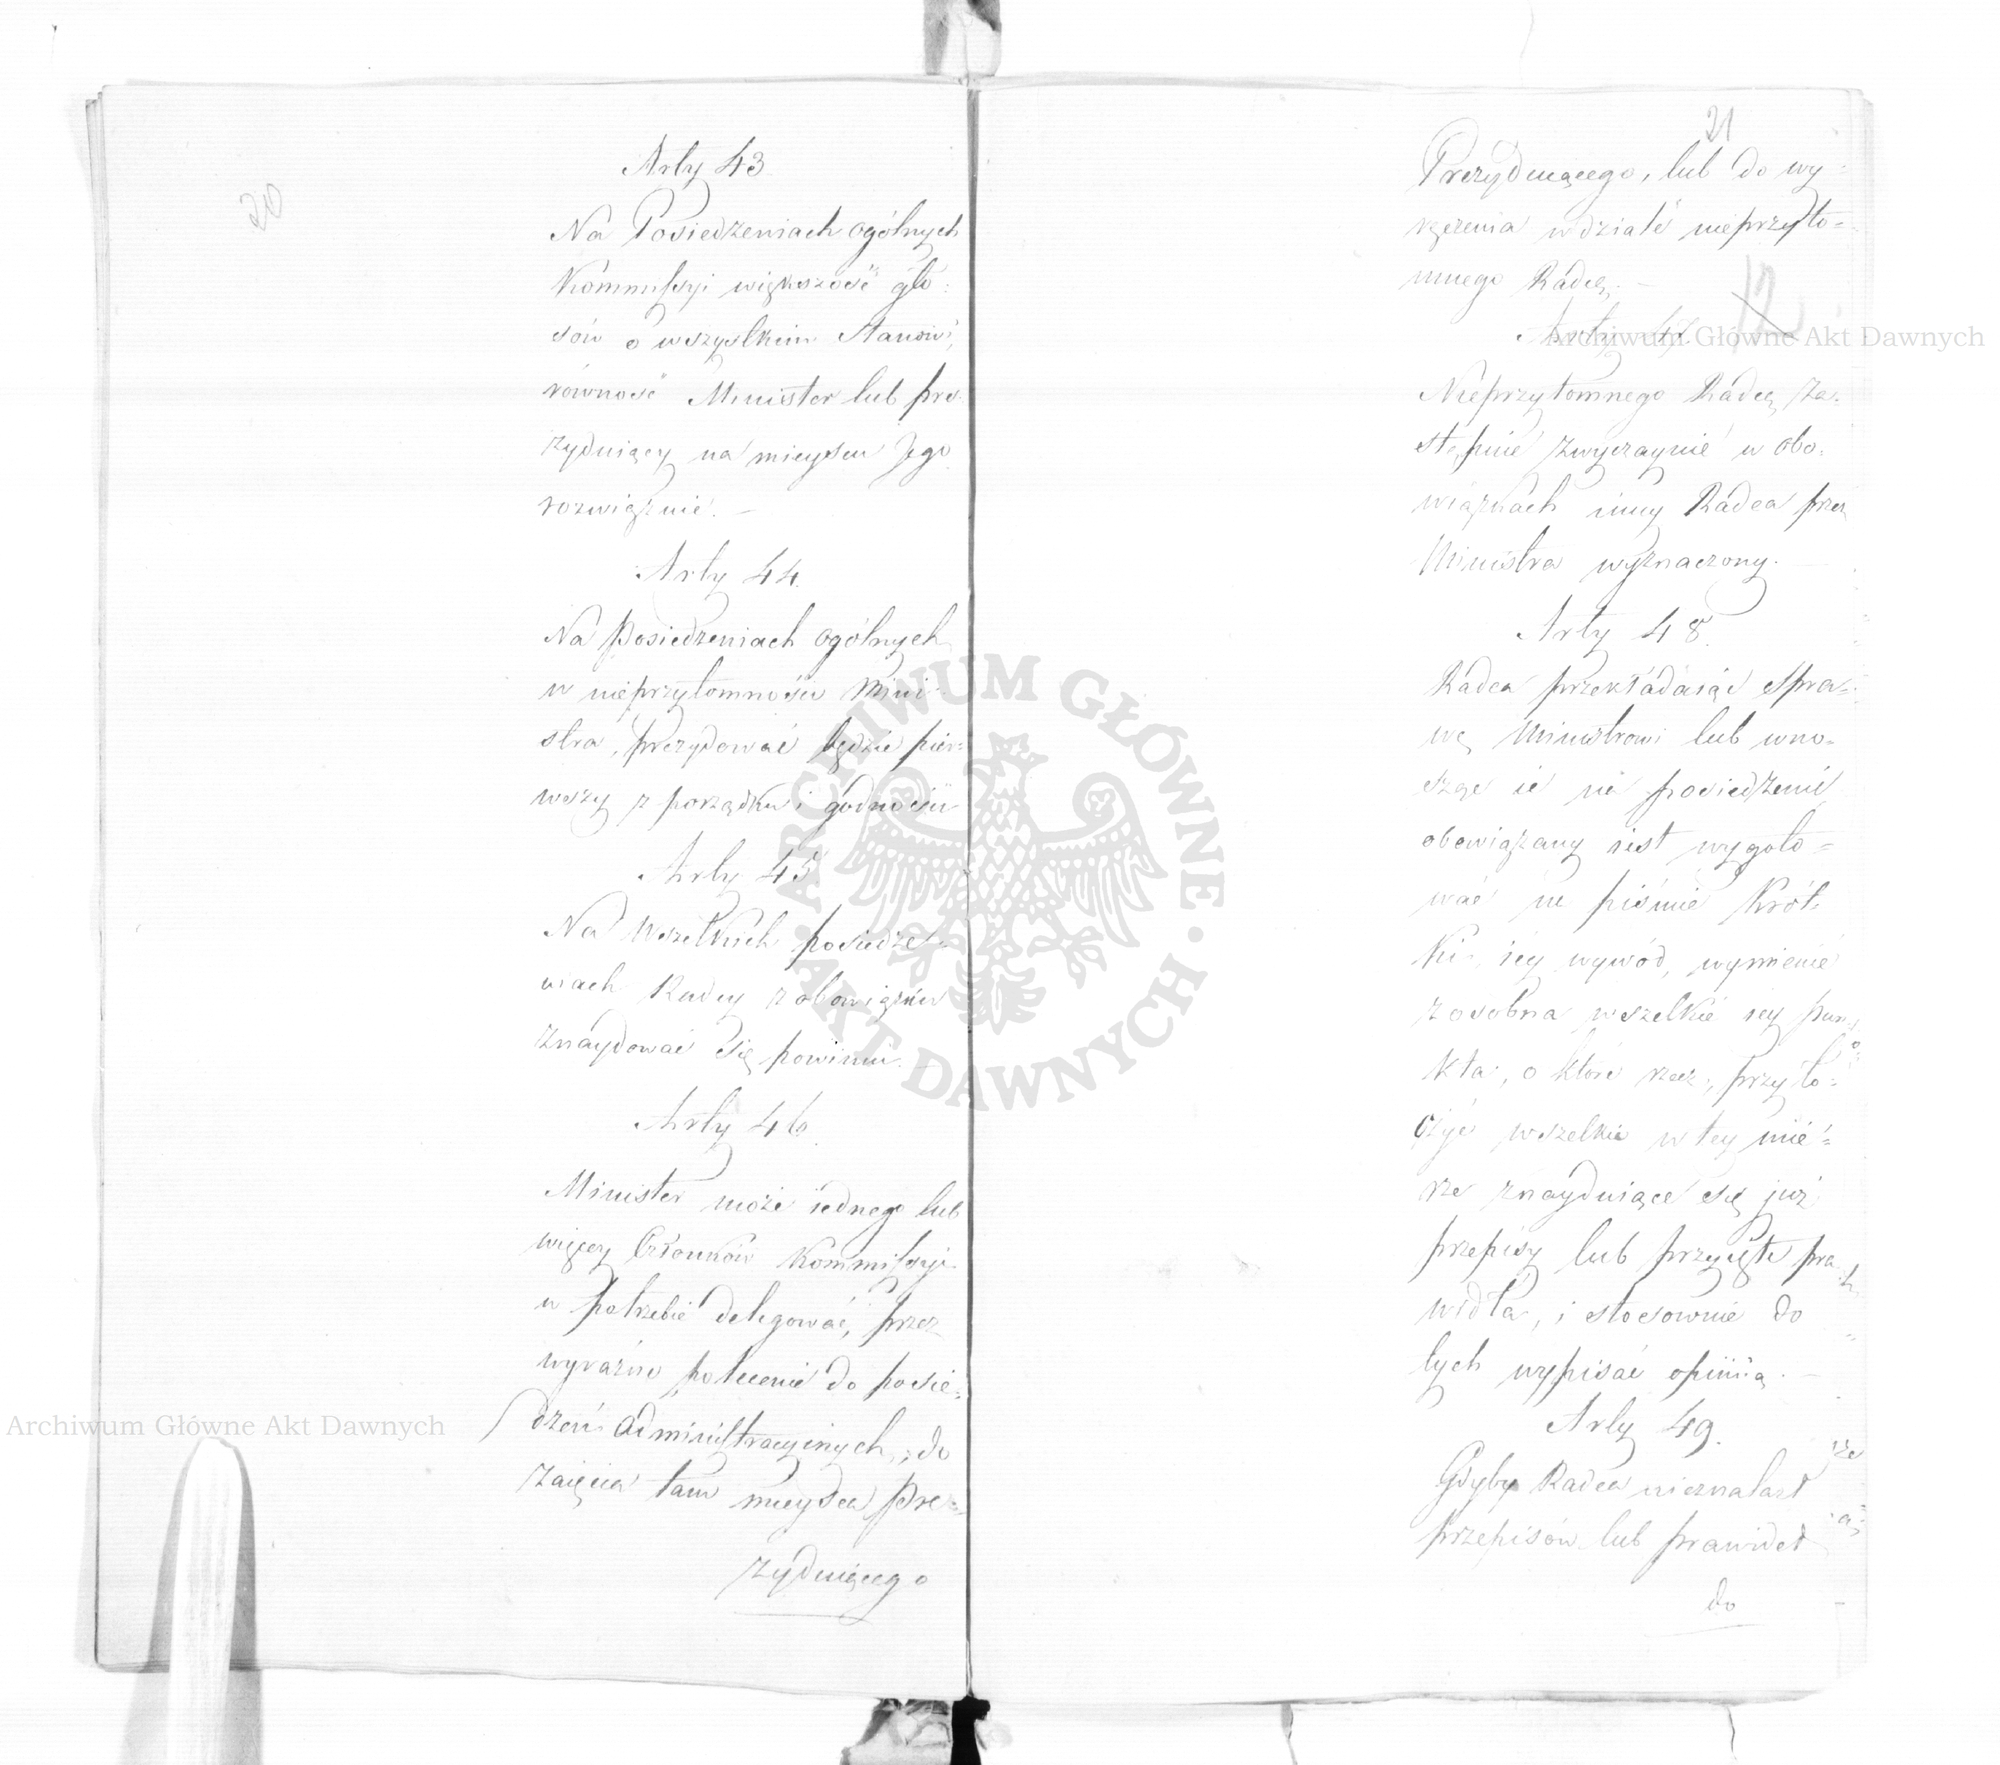 20
Arty 43
Na Posiedzeniach ogólnych
Kommissyi większość gło:
sów o wszystkim stanowi,
równość Minister lub pre:
zyduiący na mieyscu Jego
rozwiąznie. —
Arty 44.
Na Posiedzeniach ogólnych
w nieprzytomności Mini:
stra, prezydować będzie pier:
wszy z porządku i godności
Arty 45.
Na wszelkich posiedze:
niach Radcy z obowiązku
znaydować się powinni. —
Arty 46.
Minister może iednego lub
więcey Członków Kommissyi
w potrzebie delegować, przez
wyraźne polecenie do posie:
dzeń administracyinych, do
zaięcia tam mieysca Pre:
zyduiącego
21
Prezyduiącego, lub do wy:
ręczenia w dziale nieprzyto:
mnego Radcę. —
12
Arty 47.
Nieprzytomnego Radcę za:
stępuie zwyczaynie w obo:
wiązkach inny Radca przez
Ministra wyznaczony. —
Arty 48.
Radca przekładaiąc spra:
wę Ministrowi lub wno:
sząc ie na posiedzenie
obowiązany iest wygoto:
wać na piśmie krót:
ki iey wywód, wymienić
z osobna wszelkie iey pun:
kta, o które rzecz, przyto:
czyć wszelkie w tey mie:
rze znayduiące się już
przepisy lub przyięte pra
widła, i stosownie do
tych wypisać opinią. —
Arty 49.
Gdyby Radca nieznalazł
przepisów lub prawideł
do
Archiwum Główne Akt Dawnych
Archiwum Główne Akt Dawnych
ARCHIWUM GŁÓWNE · AKT DAWNYCH ·